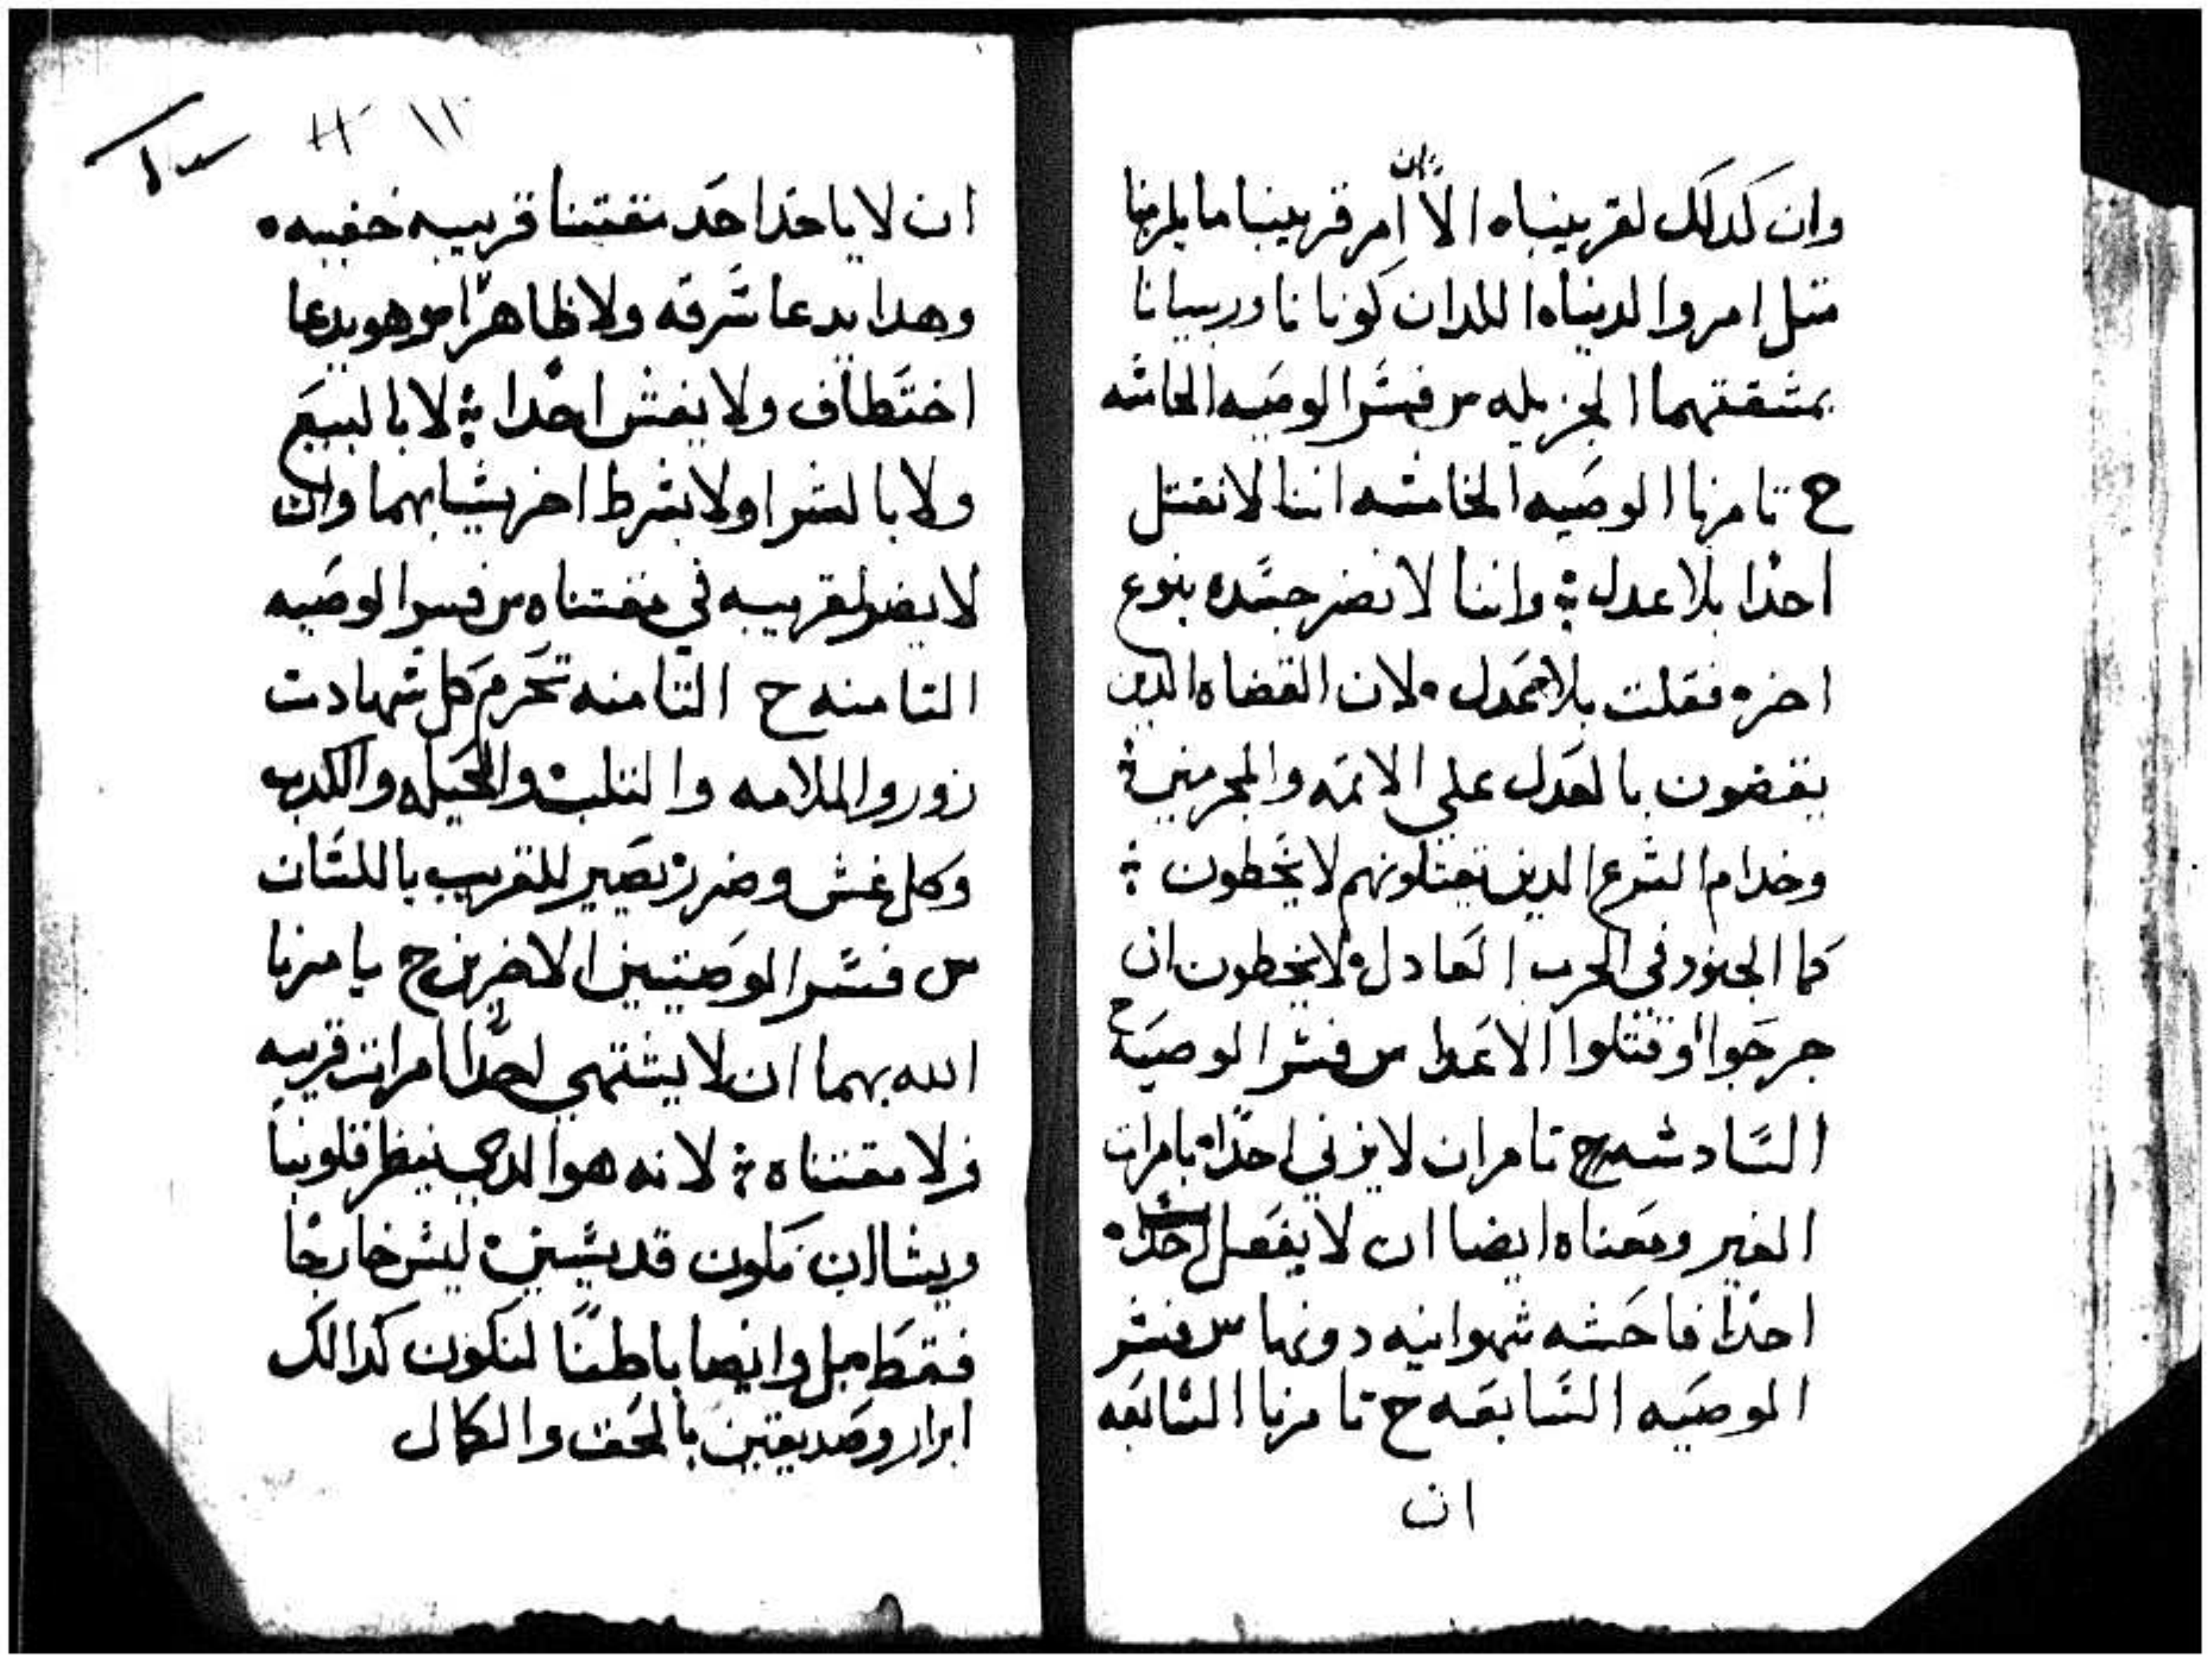 وان كدلك لقريبنا٥ الا ان امر قريبنا ما يلزمنا
متل امر والدينا٥ اللدان كونانا وربيانا
بمشقتهما الجزيله س فسر الوصيه الخامسه
ح تامرنا الوصيه الخامسه اننا لا نقتل
احدا بلا عدل ؛ واننا لا نضر جسده بنوع
اخر٥ فقلت بلا عدل ٥ لان القضاه الدين
يقضون بالعدل علي الاتمه والمجرمين ؛
وخدام الشرع الدين يقتلونهم لا يخطون ؛
كما الجنود في الحرب العادل٥ لا يخطون ان
جرحوا او قتلوا الاعدا س فسر الوصيه
السادسه ح تامر ان لا يزني احدا٥ بامراة
الغير ومعناه ايضا ان لا يفعل
احدا فاحشه شهوانيه دونها س فسر
الوصيه السابعه ح تامرنا السابعه
ان
١١
ان لا ياخد احد مقتنا قريبه خفيه ٥
وهدا يدعا سرقه ولا ظاهرا وهو يدعا
اختطاف ولا يغش احدا ؛ لا بالبيع
ولا بالشرا ولا بشرط اخر يشابهما وان
لا يضر لقريبه في مقتناه س فسر الوصيه
التامنه ح التامنه تحرم كل شهادت
زور والملامه والتلب والحيله والكدب
وكل غش وضرر يصير للقريب باللسان
س فسر الوصيتين الاخرين ح يامرنا
الله بهما ان لا يشتهي احدا امرات قريبه
ولا مقتناه ؛ لانه هو الدي ينظر قلوبنا
ويشا ان نكون قديسين ٥ ليس خارجا
فقط بل وايضا باطنا لنكون كدالك
ابرار وصديقين بالحق والكمال